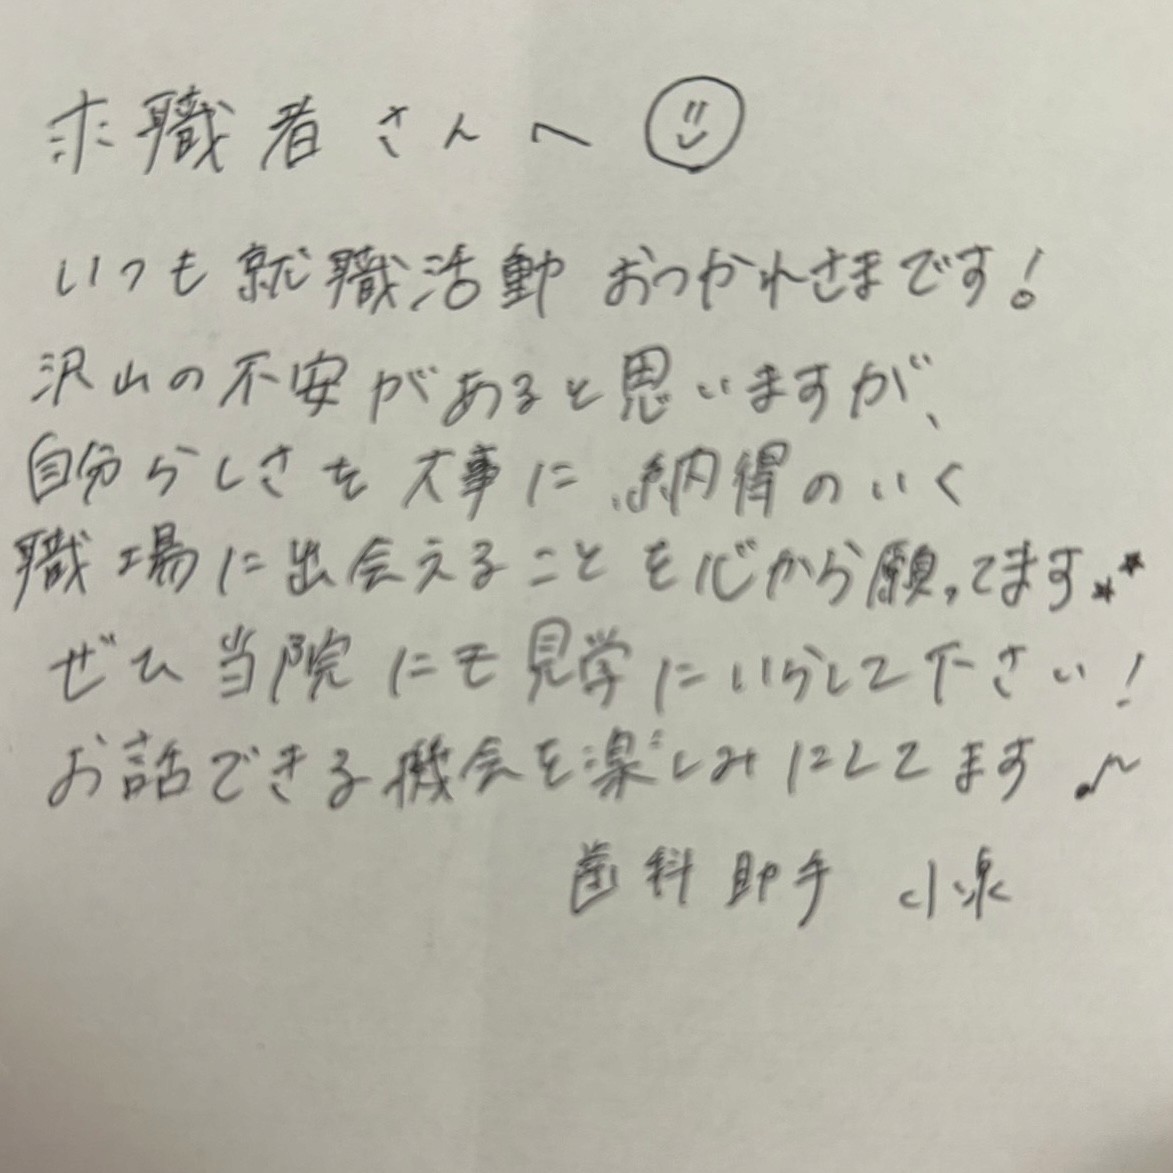 求職者さんへ
いつも就職活動 おつかれさまです!
沢山の不安があると思いますが、
自分らしさを大事に、納得のいく
職場に出会えることを心から願ってます
ぜひ当院にも見学にいらして下さい!
お話できる機会を楽しみにしてます♪
歯科助手 小泉